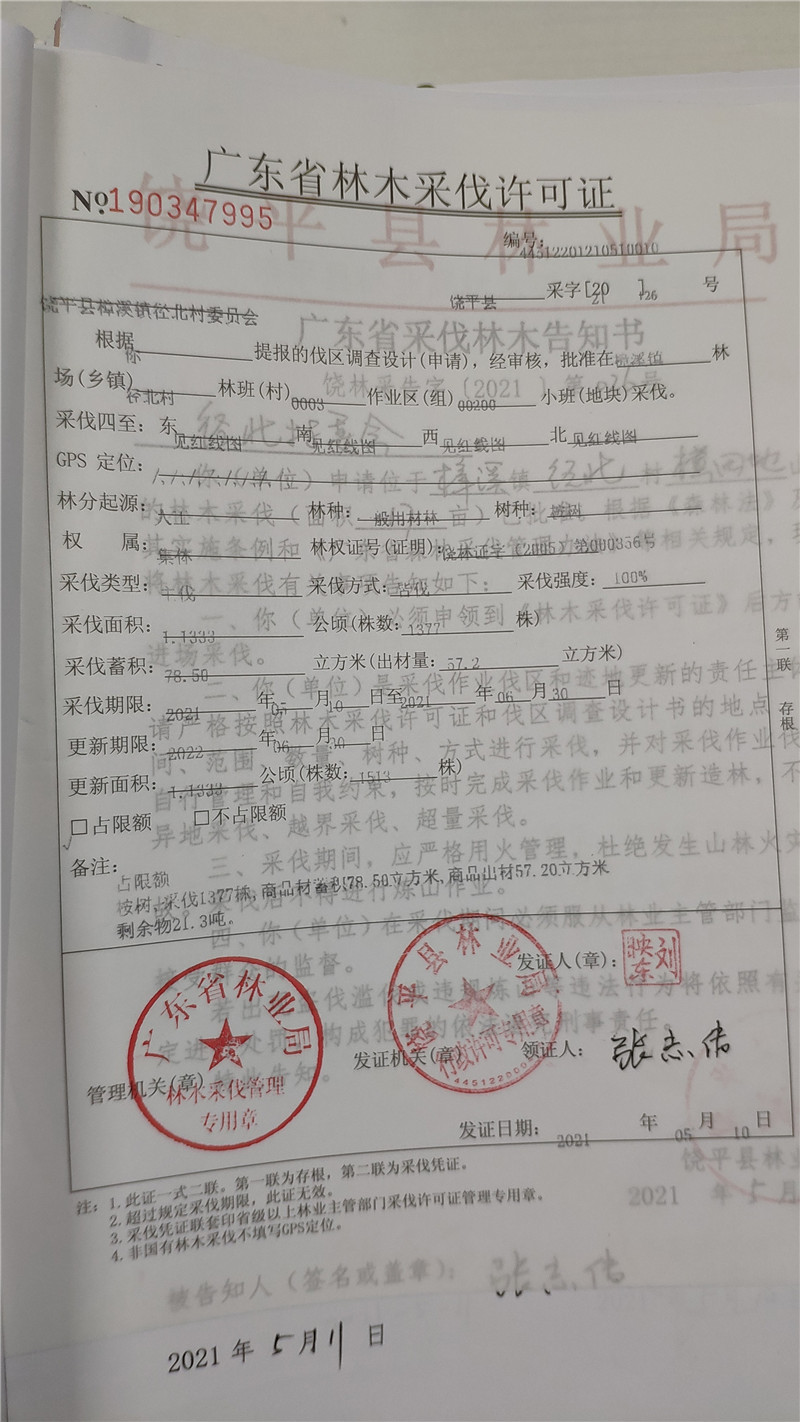 广东省林木采伐许可证
№190347995
编号:
44512201210510010
饶平县 采字[2021]126 号
饶平县樟溪镇径北村委员会
根据 你 提报的伐区调查设计(申请)，经审核，批准在樟溪镇 林
场(乡镇)径北村 林班(村)0003 作业区(组)00200 小班(地块)采伐。
采伐四至：东 见红线图 南 见红线图 西 见红线图 北 见红线图
GPS 定位：/./././././.
林分起源：人工 林种：一般用材林 树种：桉树
权 属：集体 林权证号(证明)：饶林证字（2005）第000356号
采伐类型：主伐 采伐方式：皆伐 采伐强度：100%
采伐面积：1.1333 公顷(株数：1377 株)
采伐蓄积：78.50 立方米(出材量：57.2 立方米)
采伐期限：2021 年05 月10 日至2021 年06 月30 日
更新期限：2022 年06 月30 日
更新面积：1.1333 公顷(株数：1513 株)
√□占限额 □不占限额
备注：
占限额
桉树,采伐1377株,商品材蓄积78.50立方米,商品出材57.20立方米
剩余物21.3吨。
第一联 存根
发证人(章)：
刘映东
管理机关(章)
广东省林业局
林木采伐管理
专用章
发证机关(章)
饶平县林业局
行政许可专用章
领证人：张志伟
发证日期：2021 年 05 月 10 日
注：1.此证一式二联。第一联为存根，第二联为采伐凭证。
2.超过规定采伐期限，此证无效。
3.采伐凭证联套印省级以上林业主管部门采伐许可证管理专用章。
4.非国有林木采伐不填写GPS定位。
饶平县林业局
广东省采伐林木告知书
饶林采告字〔2021〕第026号
你（单位）申请位于樟溪镇径北村
的林木采伐
根据《森林法》及
其实施条例和《广东省林木采伐管理
相关规定，
将林木采伐有关
告知如下：
一、你（单位）必须申领到《林木采伐许可证》后方
进场采伐。
二、你（单位）是采伐作业伐区和迹地更新的责任主体
请严格按照林木采伐许可证和伐区调查设计书的地点
间、范围、数量、树种、方式进行采伐，并对采伐作业
自行管理和自我约束，按时完成采伐作业和更新造林，不
异地采伐、越界采伐、超量采伐。
三、采伐期间，应严格用火管理，杜绝发生山林火灾
采伐后不得进行炼山作业。
四、你（单位）在采伐期间必须服从林业主管部门监
接受
的监督。
将依照有
构成犯罪的依
刑事责任。
特此告知。
饶平县林业
2021 年 5 月
被告知人（签名或盖章）：张志伟
2021 年 5 月 11 日